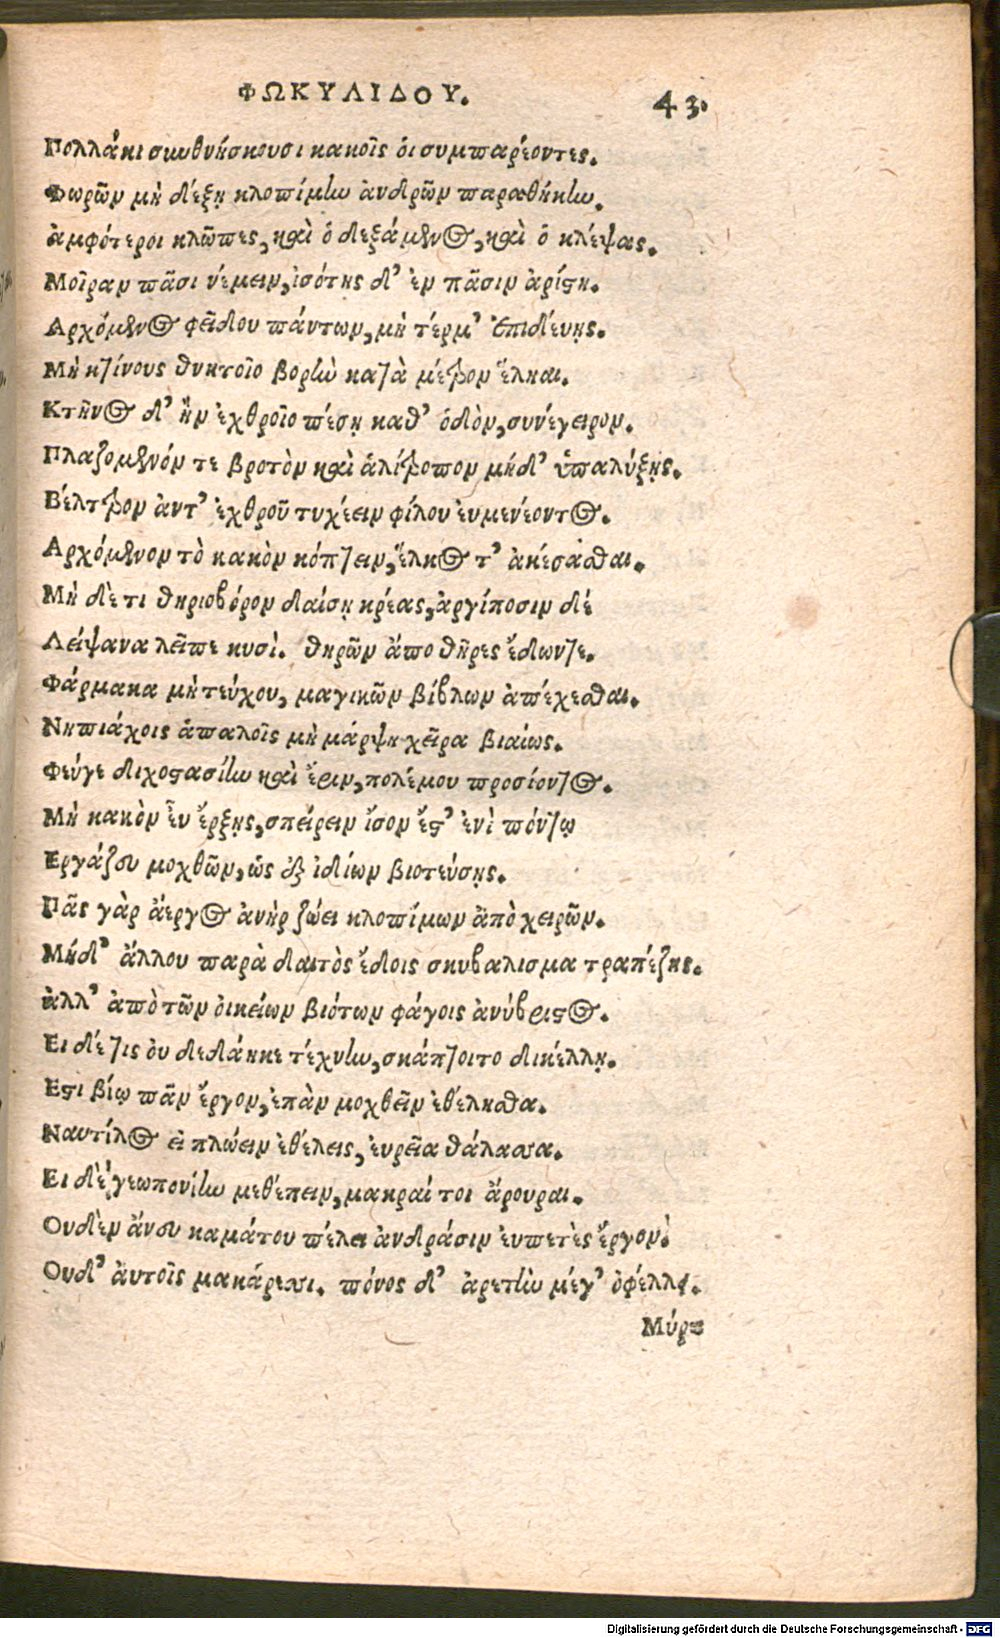 ΦΩΚΥΛΙΔΟΥ. 43.
Πολλάκι συνθνήσκουσι κακοῖς ὁι συμπαρέοντες.
Φωρῶν μὴ δέξῃ κλοπίμην ἀνδρῶν παραθήκην.
ἀμφότεροι κλῶπες, καὶ ὁ δεξάμενος, καὶ ὁ κλέψας.
Μοῖραν πᾶσι νέμειν, ἰσότης δ' ἐν πᾶσιν ἀρίστη.
Αρχόμενος φείδου πάντων, μὴ τέρμ' ἐπιδεύῃς.
Μὴ κτίνους θνητοῖο βορὴν κατὰ μέτρον ἕληαι.
Κτῆνος δ' ἢν ἐχθροῖο πέσῃ καθ' ὁδὸν, συνέγειρον.
Πλαζομενόν τε βροτὸν καὶ ἀλίτροπον μήδ' ὑπαλύξῃς.
Βέλτρον ἀντ' ἐχθροῦ τυχέειν φίλου ἐυμενέοντος.
Αρχόμενον τὸ κακὸν κόπτειν, ἕλκος τ' ἀκέσασθαι.
Μὴ δὲ τι θηριοβόρον δαίσῃ κρέας, ἀργίποσιν δέ
Λείψανα λεῖπε κυσί. θηρῶν ἄπο θῆρες ἔδωνται.
Φάρμακα μὴ τεύχου, μαγικῶν βίβλων ἀπέχεσθαι.
Νηπιάχοις ἁπαλοῖς μὴ μάρψῃ χεῖρα βιαίως.
Φεύγε διχοστασίην καὶ ἔριν, πολέμου προσίοντος.
Μὴ κακὸν ἒυ ἔρξῃς, σπείρειν ἴσον ἔστ' ἐνὶ πόντῳ
Εργάζου μοχθῶν, ὡς ἐξ ἰδίων βιοτεύσῃς.
Πᾶς γὰρ ἀεργος ἀνὴρ ζώει κλοπίμων ἀπὸ χειρῶν.
Μήδ' ἄλλου παρὰ δαιτὸς ἔδοις σκυβαλισμα τραπέζης.
ἀλλ' ἀπὸ τῶν ὀικείων βιότων φάγοις ἀνύβριστος.
Ει δέ τις ὀυ δεδάηκε τέχνην, σκάπτοιτο δικέλλῃ.
Εστι βίῳ πᾶν ἔργον, ἐπὰν μοχθεῖν ἐθέλησθα.
Ναυτίλος εἰ πλώειν ἐθέλεις, ἐυρεῖα θάλασσα.
Ει δὲ γεωπονίην μεθέπειν, μακραί τοι ἄρουραι.
Ουδὲν ἄνευ καμάτου πέλει ἀνδράσιν ἐυπετὲς ἔργον.
Ουδ' ἀυτοῖς μακάρεσσι. πόνος δ' ἀρετὴν μέγ' ὀφέλλει.
Μύρ=
Digitalisierung gefördert durch die Deutsche Forschungsgemeinschaft - DFG